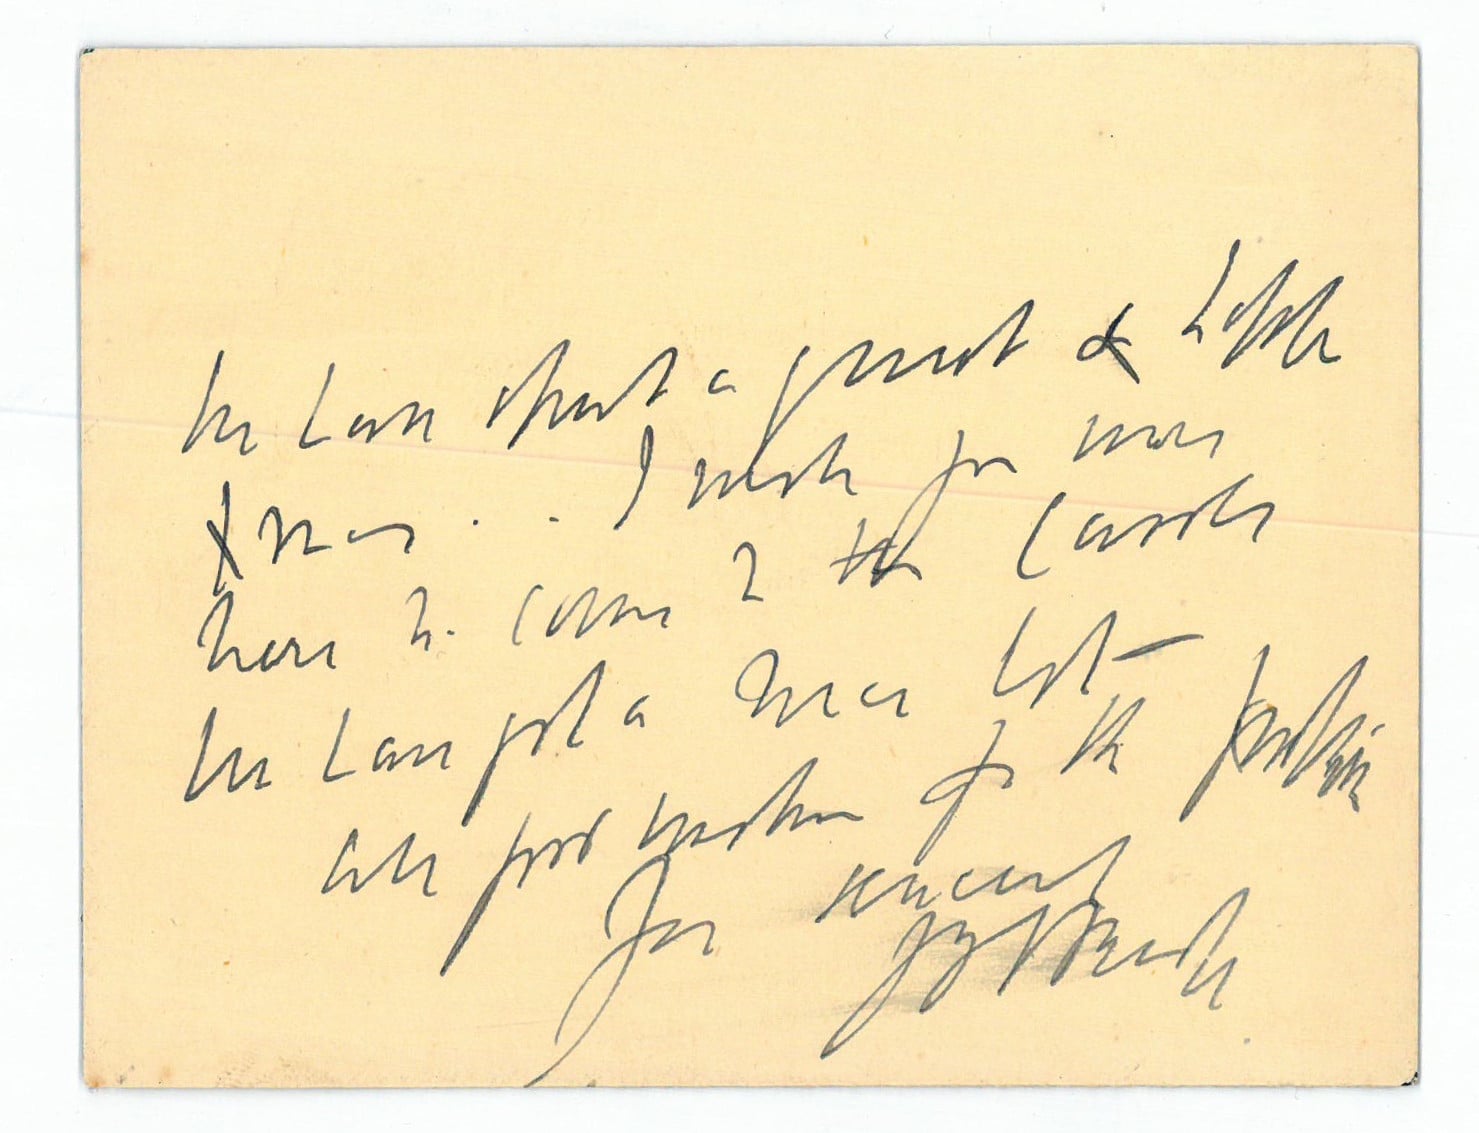 We have spent a quiet & happy
Xmas. . I wish you were
here to come to the Carols
We have got a nice lot —
All good wishes for the
Yrs sincerely